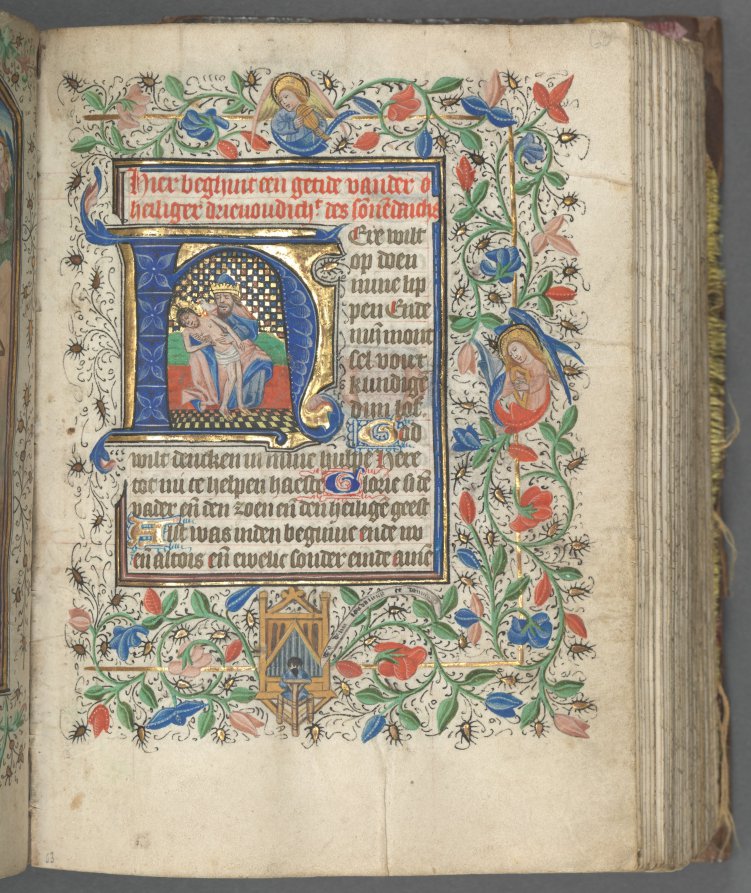 Hier beghint een getide vander ó
heiliger drievoudich^t des sōnēdaichs
HEre wilt
op doen
mine lip
pen Ende
mijn mont
sel voer
kundigē
dijn lof.
God
wilt dencken in mine hulpe Here
toe mi te helpen haeste Glorie si dē
vader eñ den zoen eñ den heiligē geest
Alst was inden beginne ende nv
eñ altois eñ ewelic sonder einde amē
63